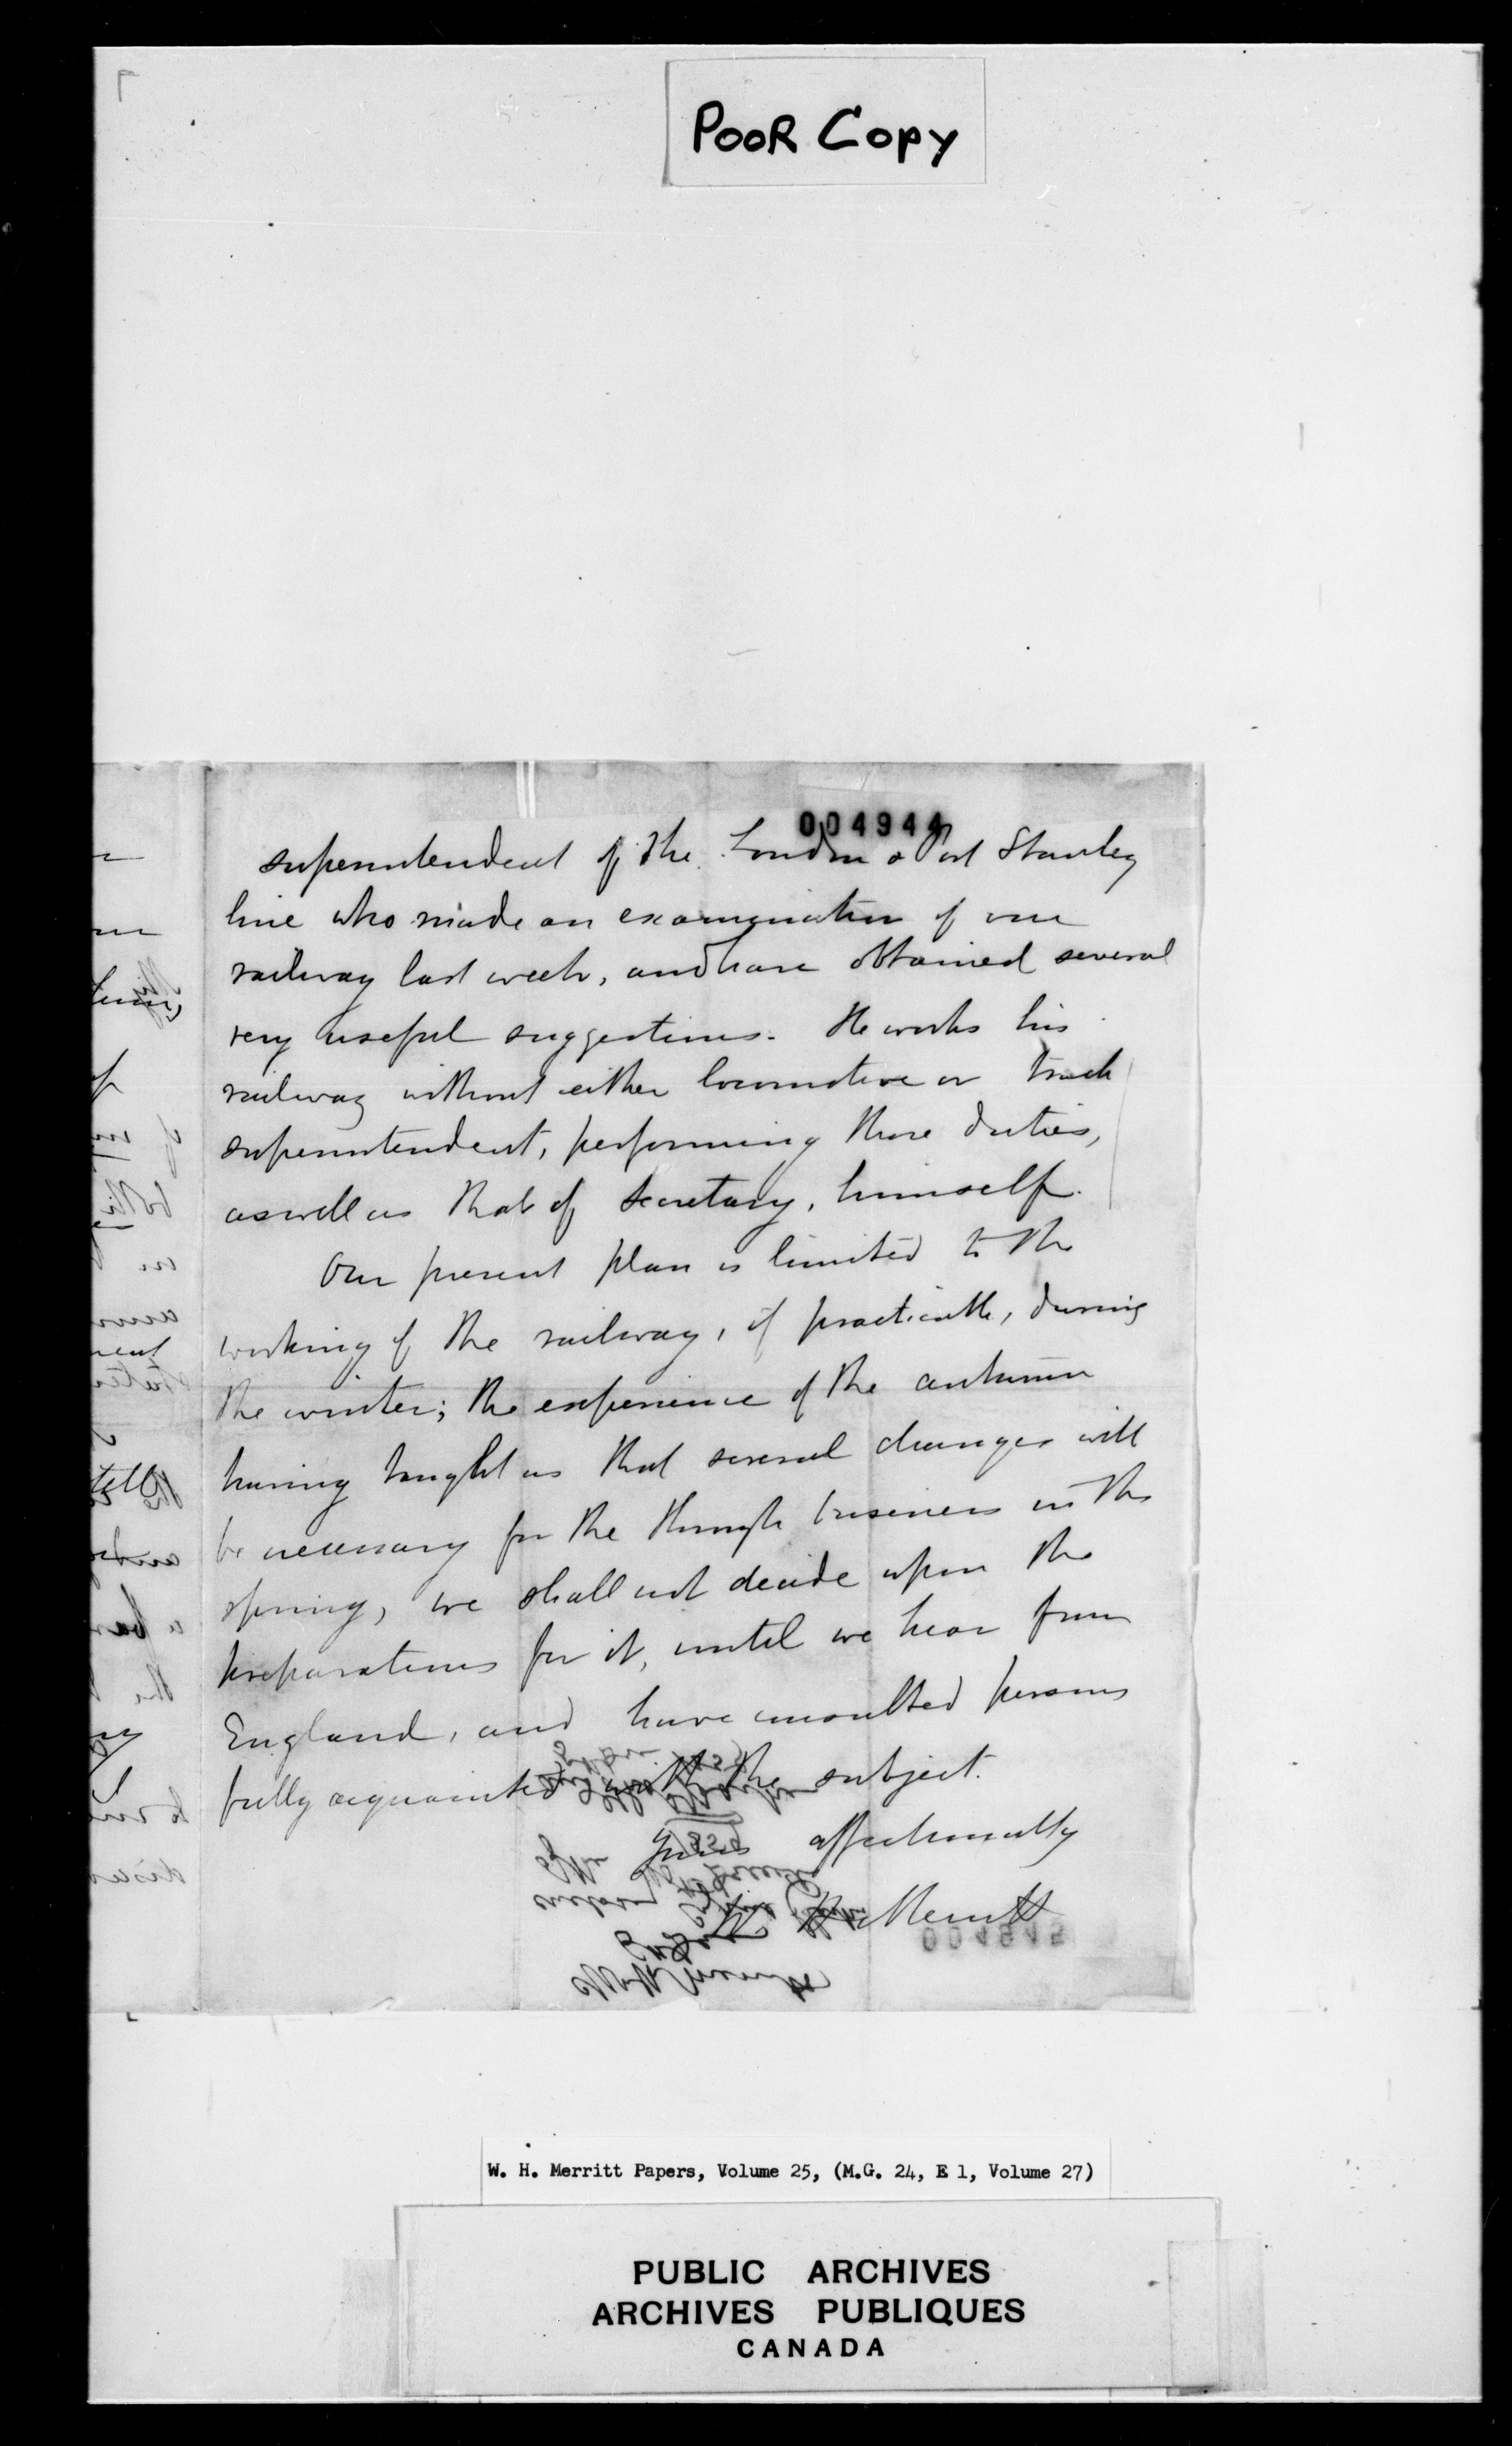 POOR COPY
004944
superintendent of the London & Port Stanley
line who made an examination of our
railway last week, and have obtained several
very useful suggestions. He works his
railway without either locomotive or track
superintendent, performing those duties,
as well as that of Secretary, himself.
Our present plan is limited to the
working of the railway, if practicable, during
the winter; the experience of the autumn
having taught us that several changes will
be necessary for the through business in the
spring, we shall not decide upon the
preparations for it, until we hear from
England, and have consulted persons
fully acquainted with the subject.
Yours affectionately
Merritt
004945
W. H. Merritt Papers, Volume 25, (M.G. 24, E 1, Volume 27)
PUBLIC ARCHIVES
ARCHIVES PUBLIQUES
CANADA